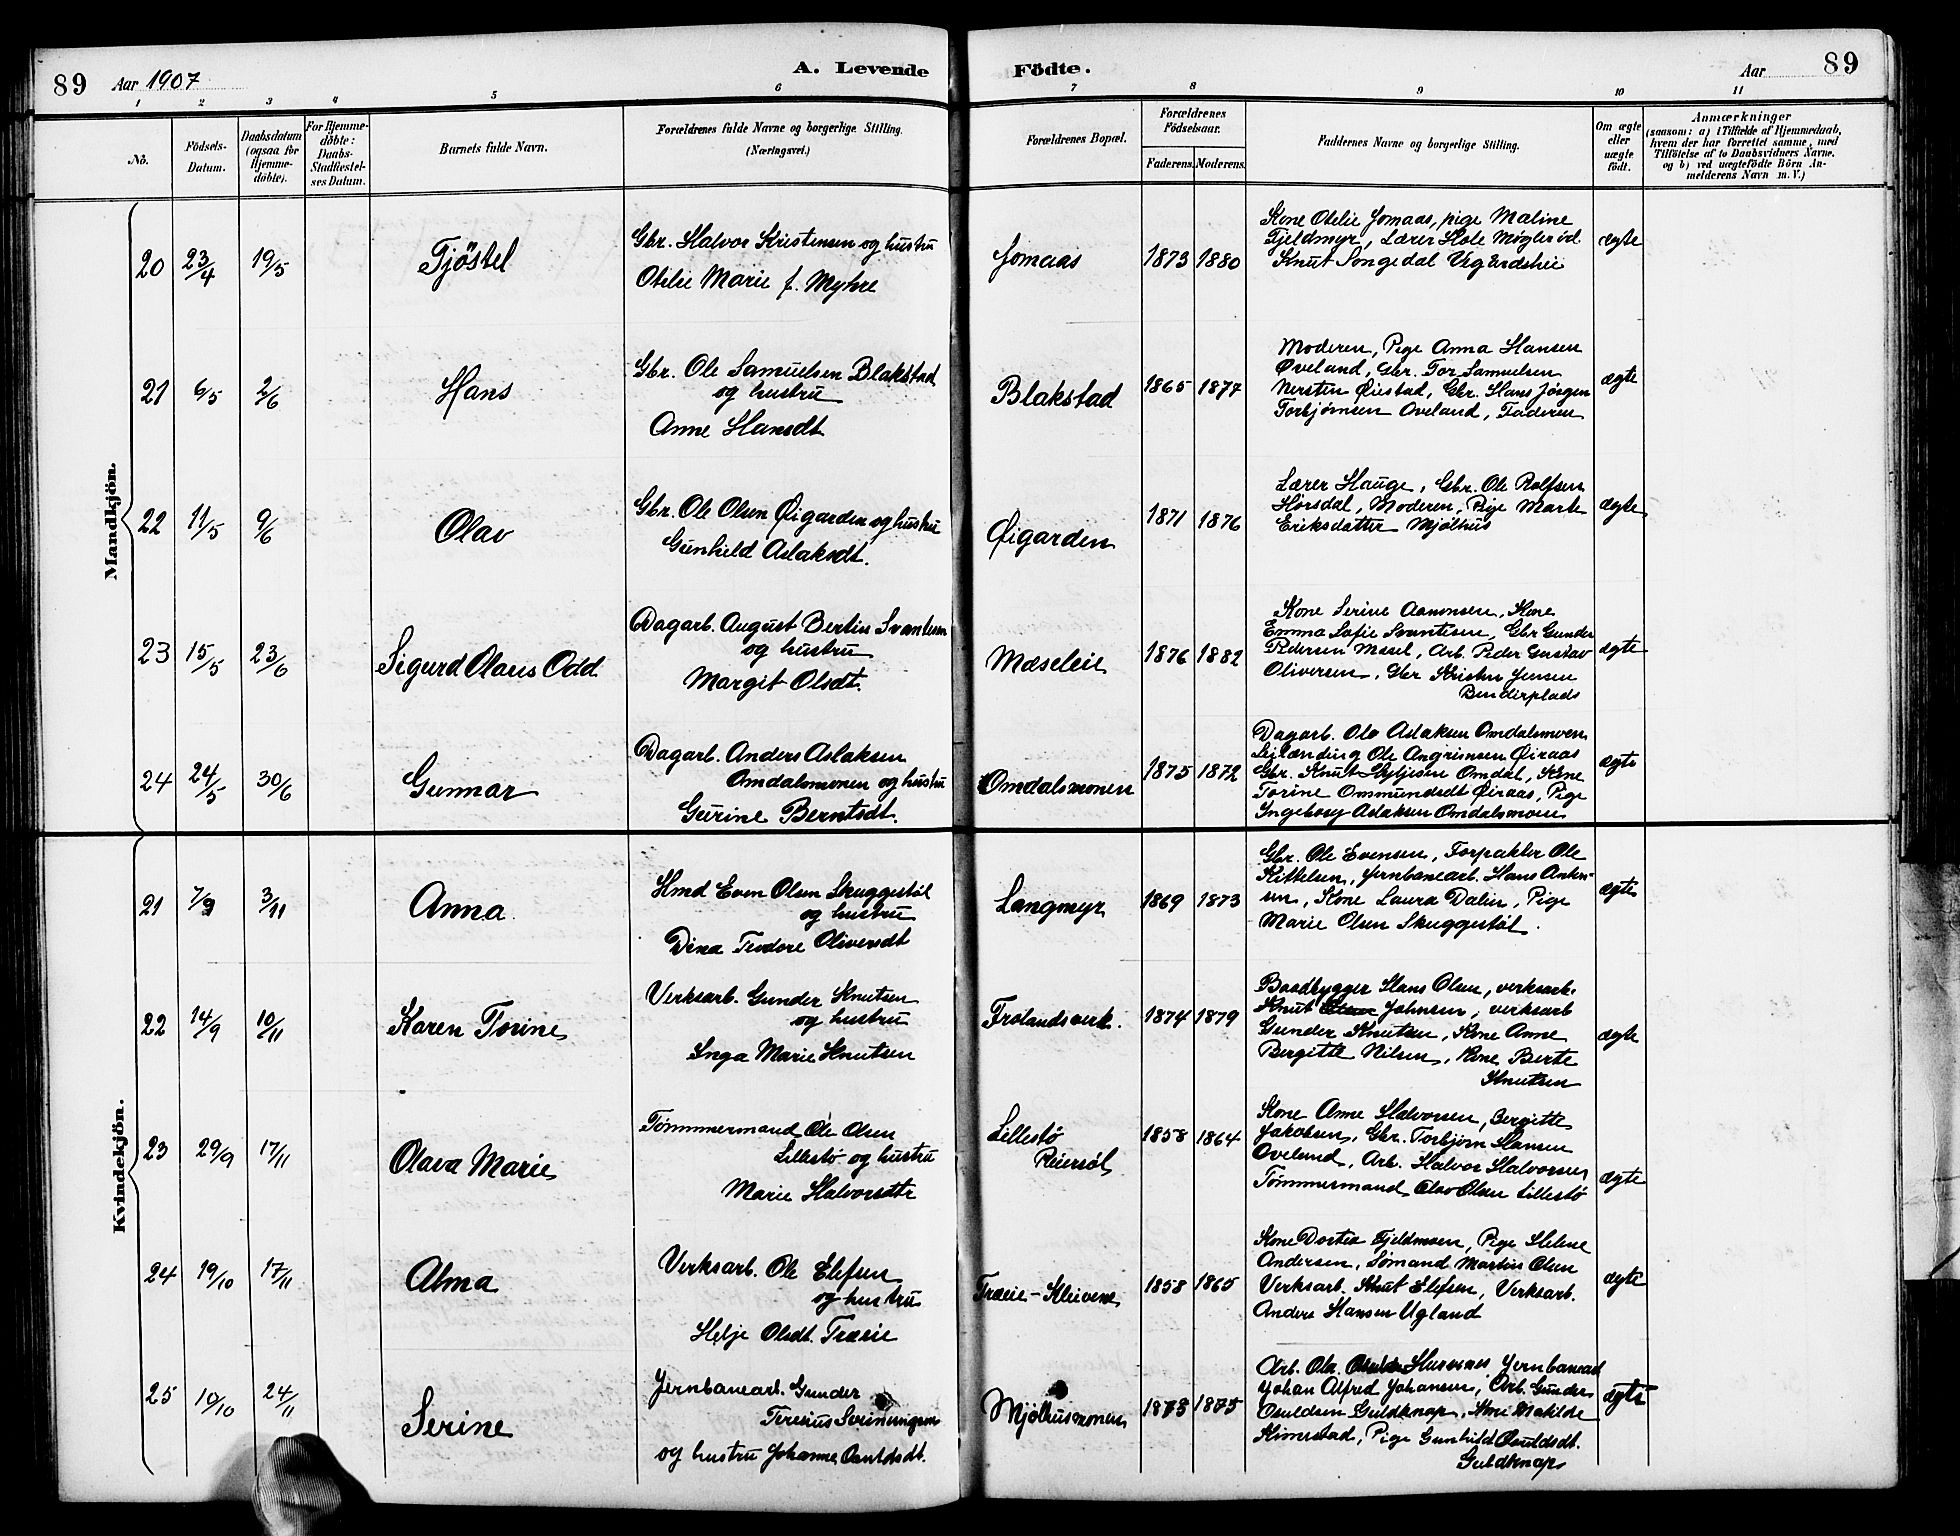 89 Aar 1907 A. Levende Födte. Aar 89
1 2 3 4 5 6 7 8 9 10 11
No.
Födsels-
Datum.
Daabsdatum
(ogsaa for
Hjemme-
döbte).
For Hjemme-
döbte:
Daabs-
Stadfæstel-
ses Datum.
Barnets fulde Navn.
Forældrenes fulde Navne og borgerlige Stilling.
(Næringsvei.)
Forældrenes Bopæl.
Forældrenes
Födselsaar.
Faderens. Moderens.
Faddernes Navne og borgerlige Stilling.
Om ægte
eller
uægte
födt.
Anmærkninger
(saasom: a) i Tilfælde af Hjemmedaab,
hvem der har forrettet samme, med
Tilföielse af to Daabsvidners Navne.
og b) ved uegtefödte Börn An-
melderens Navn m. V.)
Mandkjön.
20 23/4 19/5 Tjöstel
Gbr. Halvor Kristensen og hustru
Otelie Marie f. Myhre
Jomaas 1873 1880
Kone Otelie Jomaas, pige Maline
Fjeldmyr, Lærer Hole
Knut Songedal Vegardsheie
ægte
21 6/5 2/6 Hans
Gbr. Ole Samuelsen Blakstad
og hustru
Anne Hansdt
Blakstad 1865 1877
Moderen, Pige Anna Hansen
Øveland, Gbr. Tor Samuelsen
Nersten Øiestad, Gbr. Hans Jörgen
Torbjørnsen Oveland, Faderen
ægte
22 11/5 9/6 Olav
Gbr. Ole Olsen Øigarden og hustru
Gunhild Aslaksdt.
Øigarden 1871 1876
Lærer Hauge, Gbr. Ole Rolfsen
Horsdal, Moderen, Pige Marte
Eriksdatter Mjølhus
ægte
23 15/5 23/6 Sigurd Olaus Odd
Dagarb. August Bertin Svantesen
og hustru
Margit Olsdt.
Mæseleie 1876 1882
Kone Serine Aanonsen, Kone
Emma Sofie Svantesen, Gbr Gunder
Pedersen Mæsel, Arb. Peder Gustav
Oliversen, Gbr Kristen Jensen
Benderplads
ægte
24 24/5 30/6 Gunnar
Dagarb. Anders Aslaksen
Omdalsmonen og hustru
Gurine Berntsdt.
Omdalsmonen 1875 1872
Dagarb. Ole Aslaksen Omdalsmoen
Islænding Ole Angrimsen Øiraas
Gbr. Knut Omdal, Kone
Torine Ommundsdt Øiraas, Pige
Ingeborg Aslaksen Omdalsmoen
ægte
Kvindekjön.
21 7/9 3/11 Anna
Hmd Even Olsen Skuggestøl
og hustru
Dina Teodore Oliversdt
Langmyr 1869 1873
Gbr. Ole Evensen, Forpakter Ole
Kittelsen, Jernbanearb. Hans Anton-
sen, Kone Laura Dalen, Pige
Marie Olsen Skuggestøl.
ægte
22 14/9 10/11 Karen Torine
Verksarb. Gunder Knutsen
og hustru
Inga Marie Knutsen
Frolandsverk. 1874 1879
Baadbygger Hans Olsen, verksarb.
Knut Johnsen, verksarb
Gunder Knutsen, Kone Anne
Bergitte Nilsen, Kone Berte
Knutsen
ægte
23 29/9 17/11 Olava Marie
Tømmermand Ole Olsen
Lillestø og hustru
Marie Halvorsdtr
Lillestø
Reiersøl
1858 1864
Kone Anne Halvorsen, Bergitte
Jakobsen, Gbr. Torbjørn Hansen
Oveland, Arb. Halvor Halvorsen
Tømmermand Olav Olsen Lillestø
ægte
24 19/10 17/11 Alma
Verksarb. Ole Elefsen
og hustru
Helje Olsdt. Træeie
Træeie-Kleivene 1858 1865
Kone Dortea Fjeldmoen, Pige Helene
Andersen, Sømand Martin Olsen
Verksarb. Knut Elefsen, Verksarb.
Anders Hansen Ugland
ægte
25 10/10 24/11 Serine
Jernbanearb. Gunder
Teresius
og hustru Johanne Osuldsdt.
Mjölhusmonen 1873 1875
Arb. Ole Jernbanearb
Johan Alfred Johansen, Arb. Gunder
Osuldsen Guldknap, Kone Matilde
Pige Gunhild Osuldsdt.
Guldknap
ægte